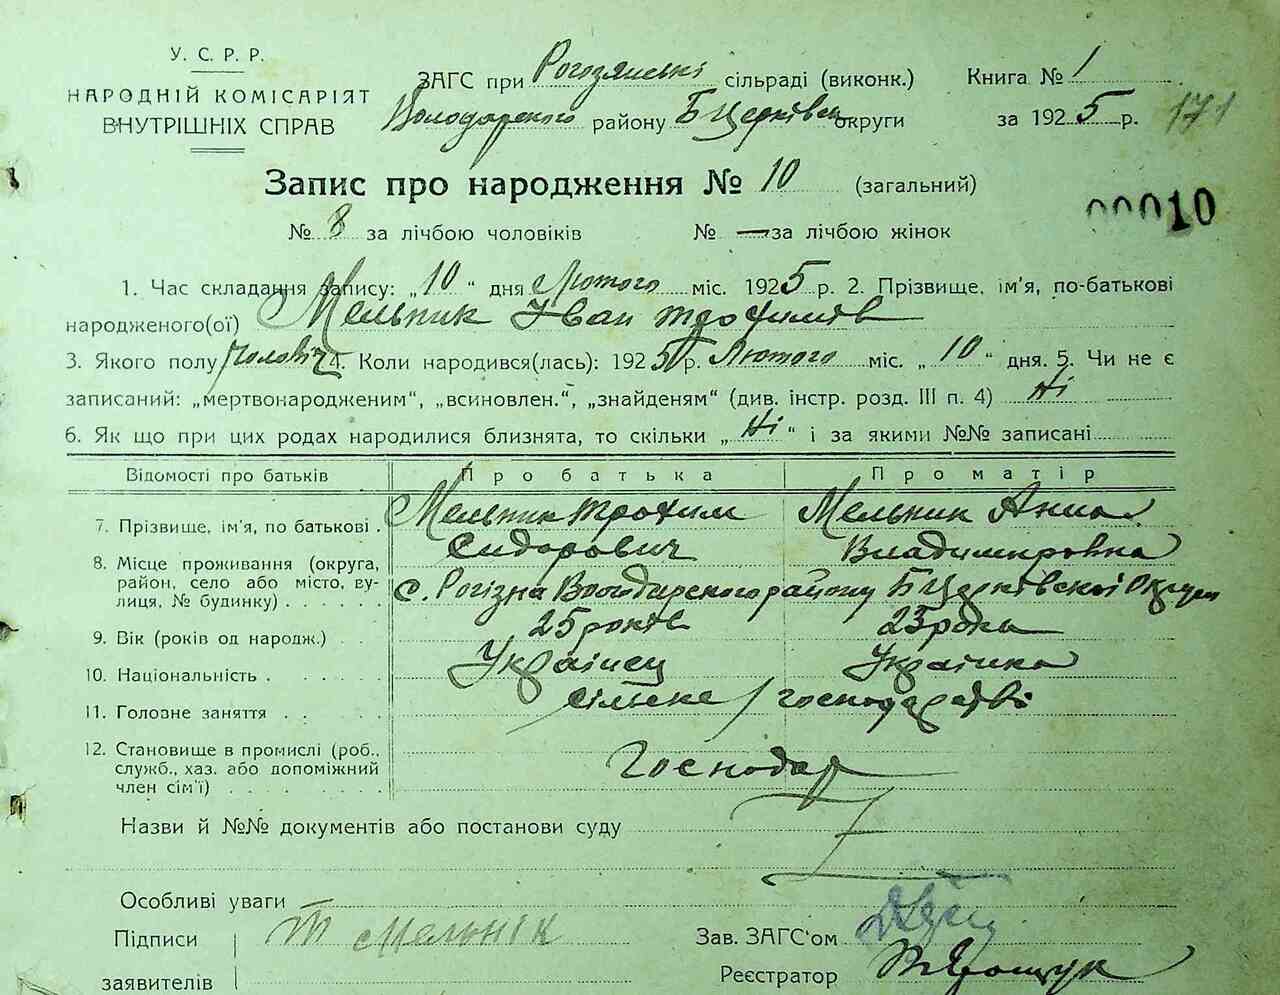 У. С. Р. Р.
НАРОДНІЙ КОМІСАРІЯТ
ВНУТРІШНІХ СПРАВ
ЗАГС при Рогозянські сільраді (виконк.)
Володарского району Б Церківськ округи
Книга № 1
за 1925 р. 171
Запис про народження № 10 (загальний)
00010
№ 8 за лічбою чоловіків № — за лічбою жінок
1. Час складання запису: „10“ дня Лютого міс. 1925 р. 2. Прізвище, ім'я, по-батькові
народженого(ої) Мельник Іван Трофимів
3. Якого полу Чоловіч 4. Коли народився(лась): 1925 р. Лютого міс. „10“ дня. 5. Чи не є
записаний: „мертвонародженим“, „всиновлен.“, „знайденям“ (див. інстр. розд. III п. 4) Ні
6. Як що при цих родах народилися близнята, то скільки „Ні“ і за якими №№ записані
Відомості про батьків Про батька Про матір
7. Прізвище, ім'я, по батькові . Мельник Трохим Мельник Анна
Сидорович Владимировна
8. Місце проживання (округа,
район, село або місто, ву-
лиця, № будинку) . . . . . . с. Рогізна Володарского району Б Церківскоі Округи
9. Вік (років од народж.) . . . 25 років 23 рока
10. Національність . . . . . . Українец Українка
11. Головне заняття . . . . . сільске господарстві
12. Становище в промислі (роб.,
служб., хаз. або допоміжний
член сім'ї) . . . . . . . . . Господар
Назви й №№ документів або постанови суду
Особливі уваги
Підписи Т Мельнік
заявителів
Зав. ЗАГС'ом
Реєстратор